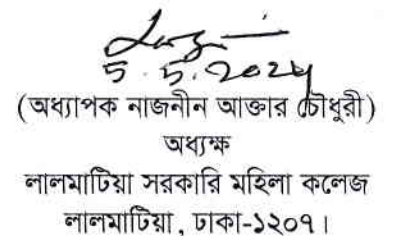 5.5.2024
(অধ্যাপক নাজনীন আক্তার চৌধুরী)
অধ্যক্ষ
লালমাটিয়া সরকারি মহিলা কলেজ
লালমাটিয়া, ঢাকা-১২০৭।